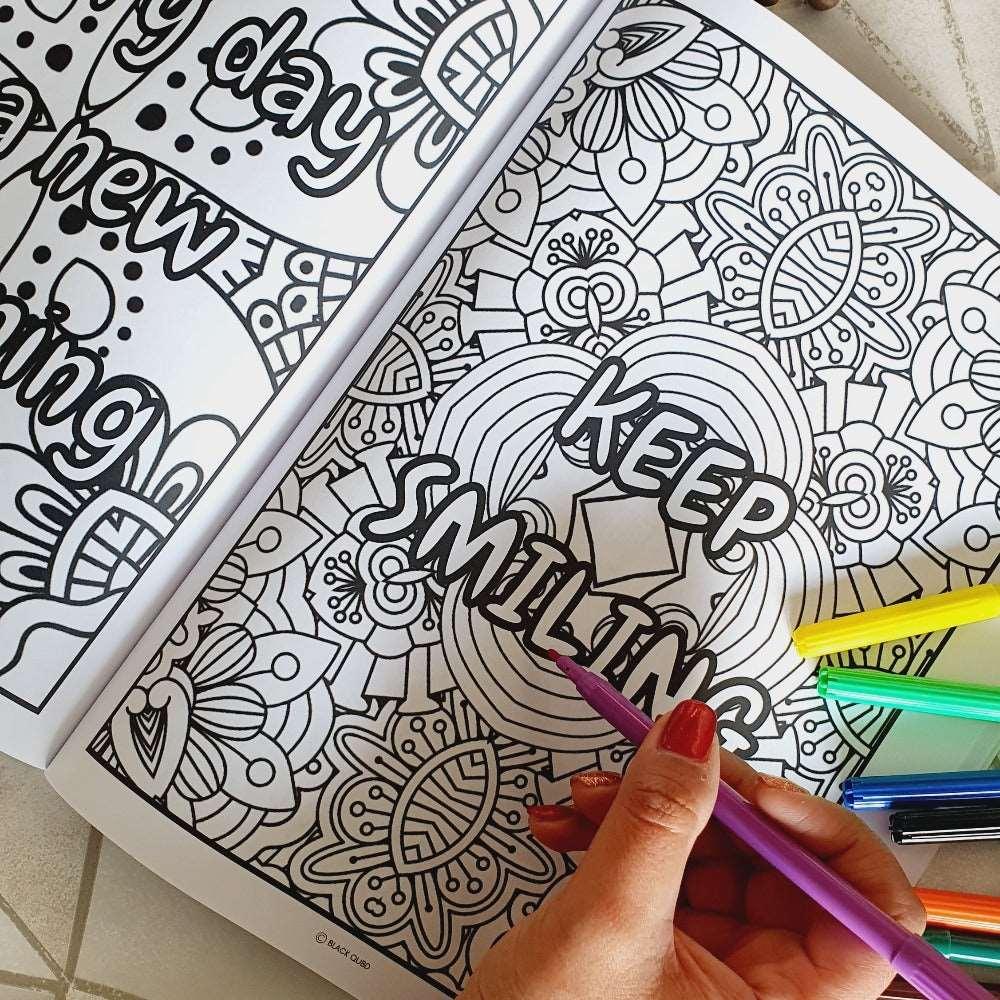 day
a new
KEEP
SMILING
© BLACK QUBD